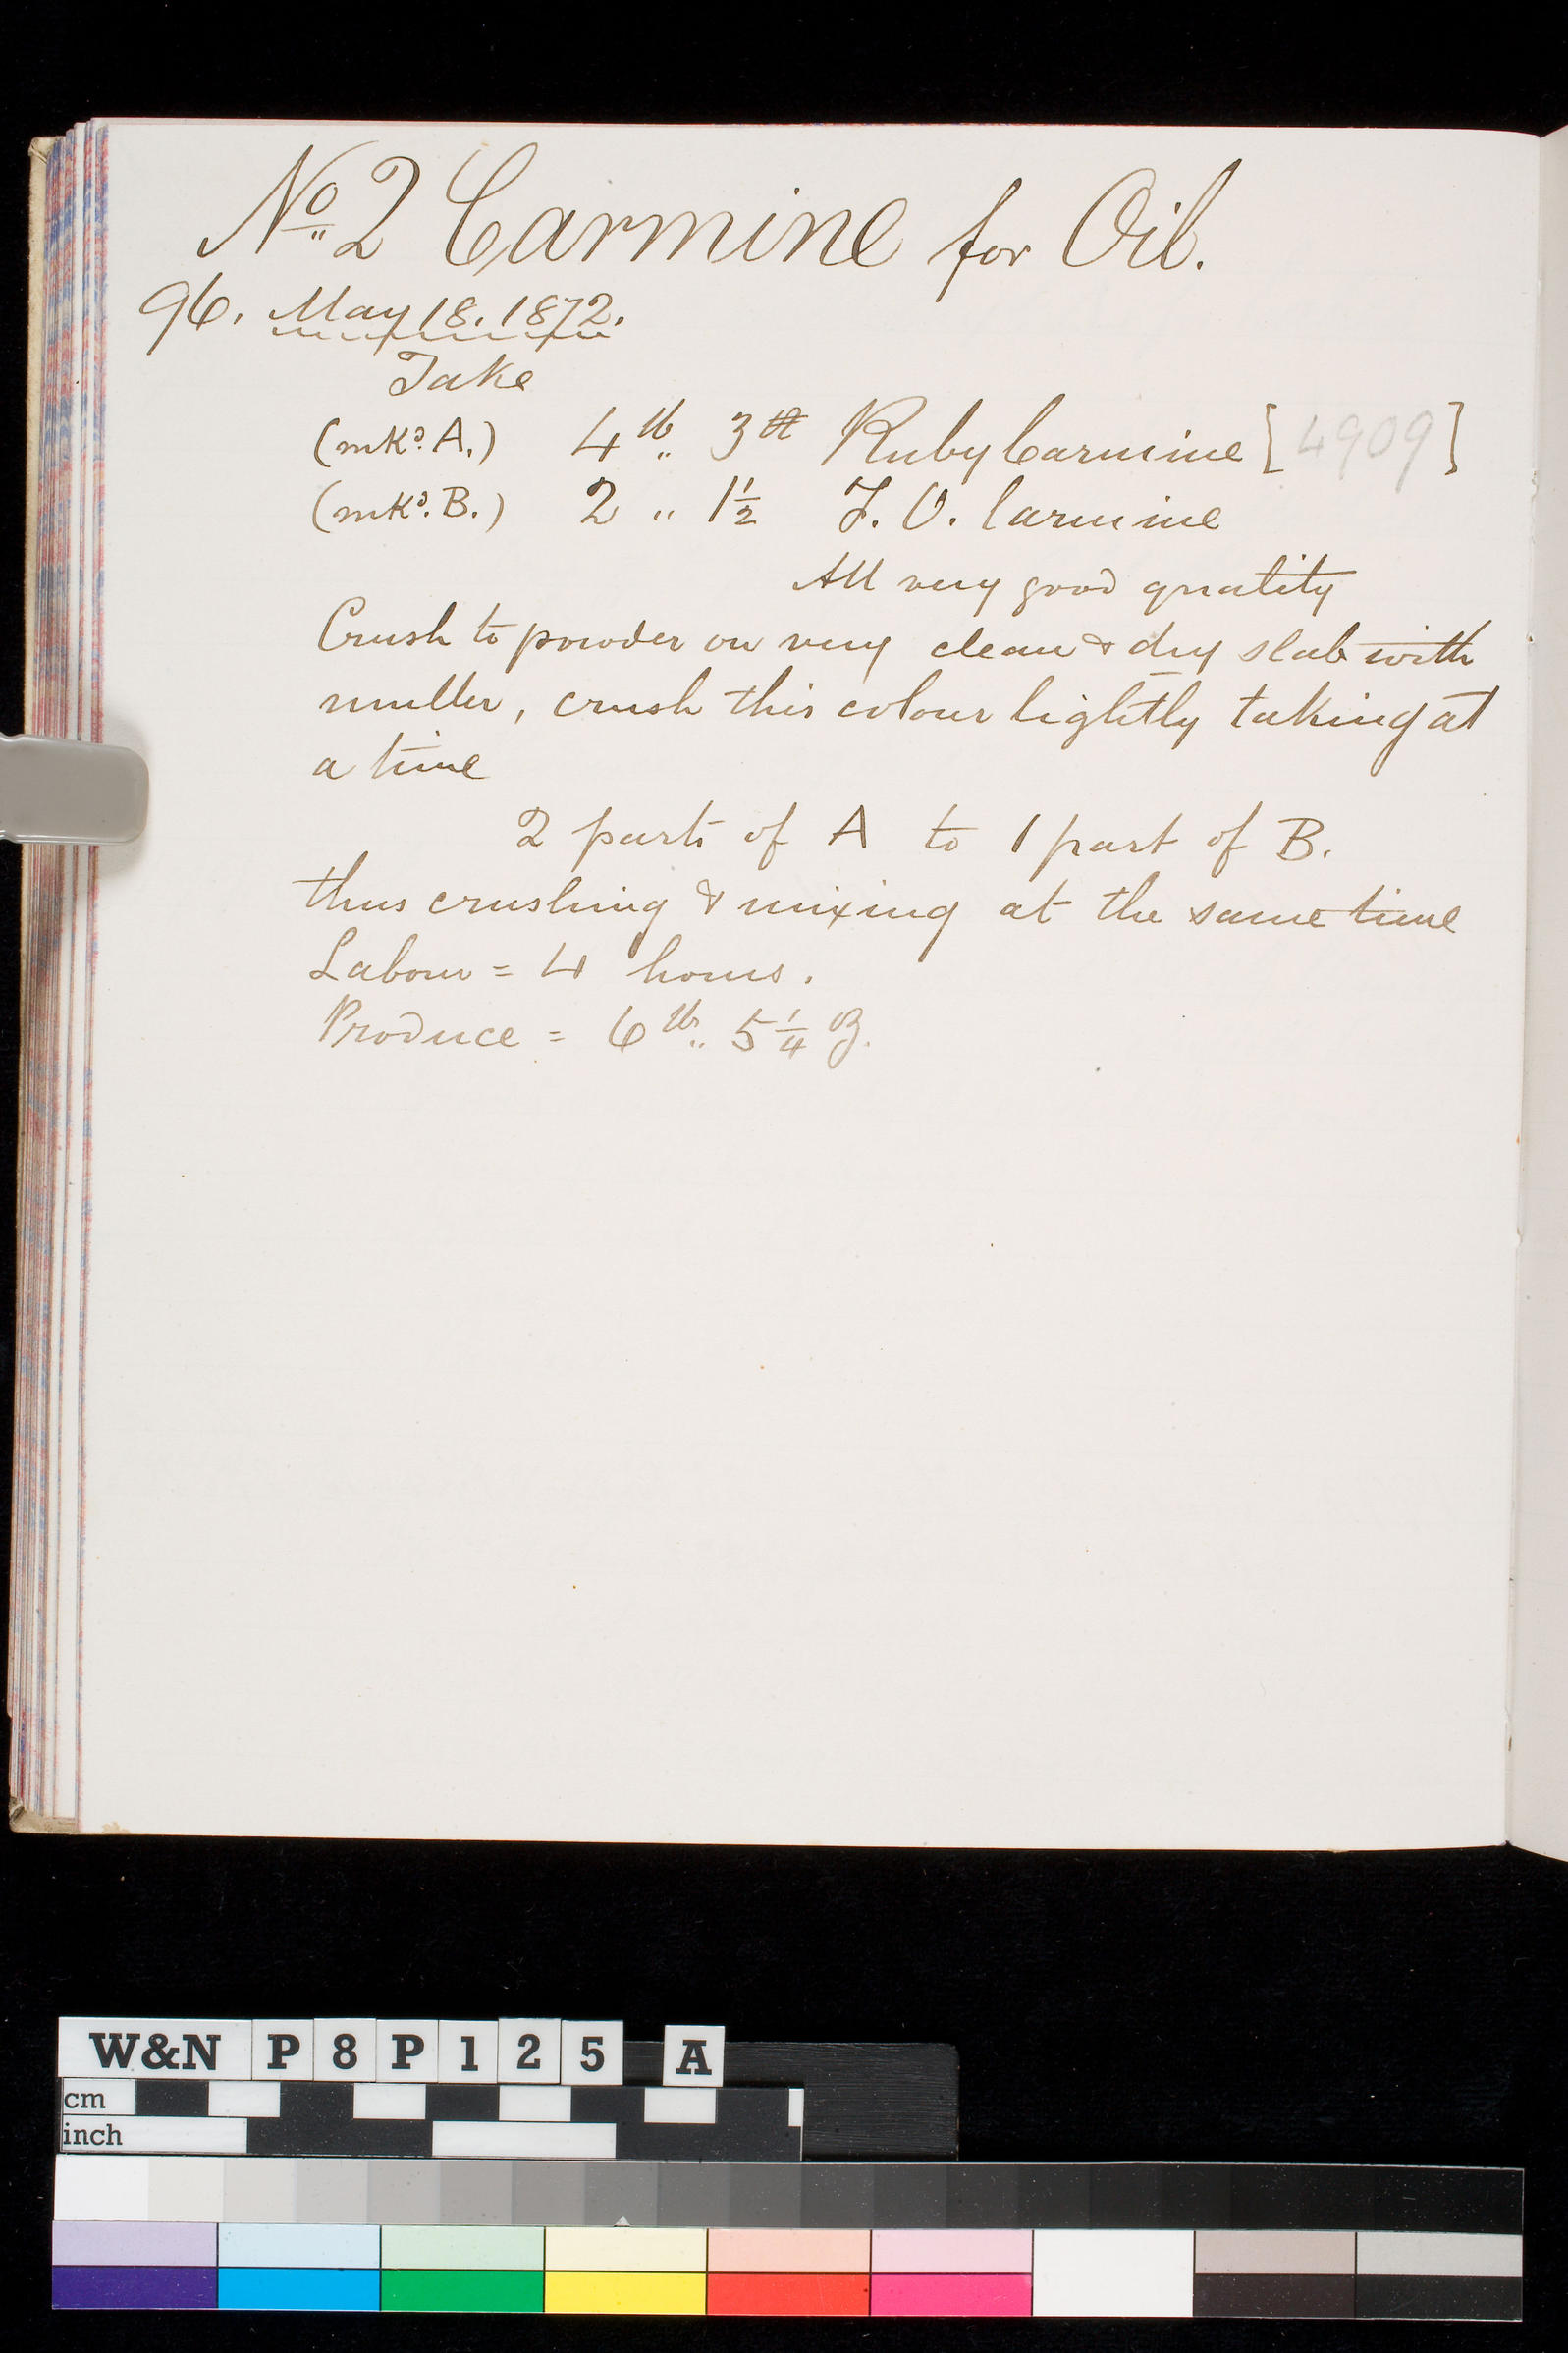 No. 2 Carmine for Oil.
96. May 18. 1872.
Take
(mkd. A.) 4 lb .. 3 Ruby Carmine [4909]
(mkd. B.) 2 .. 1½ F. O. Carmine
All very good quality
Crush to powder on very clean & dry slab with
muller, crush this colour lightly taking at
a time
2 parts of A to 1 part of B.
thus crushing & mixing at the same time
Labour = 4 hours.
Produce = 6 lb .. 5¼ oz.
W&N P8P125 A
cm
inch